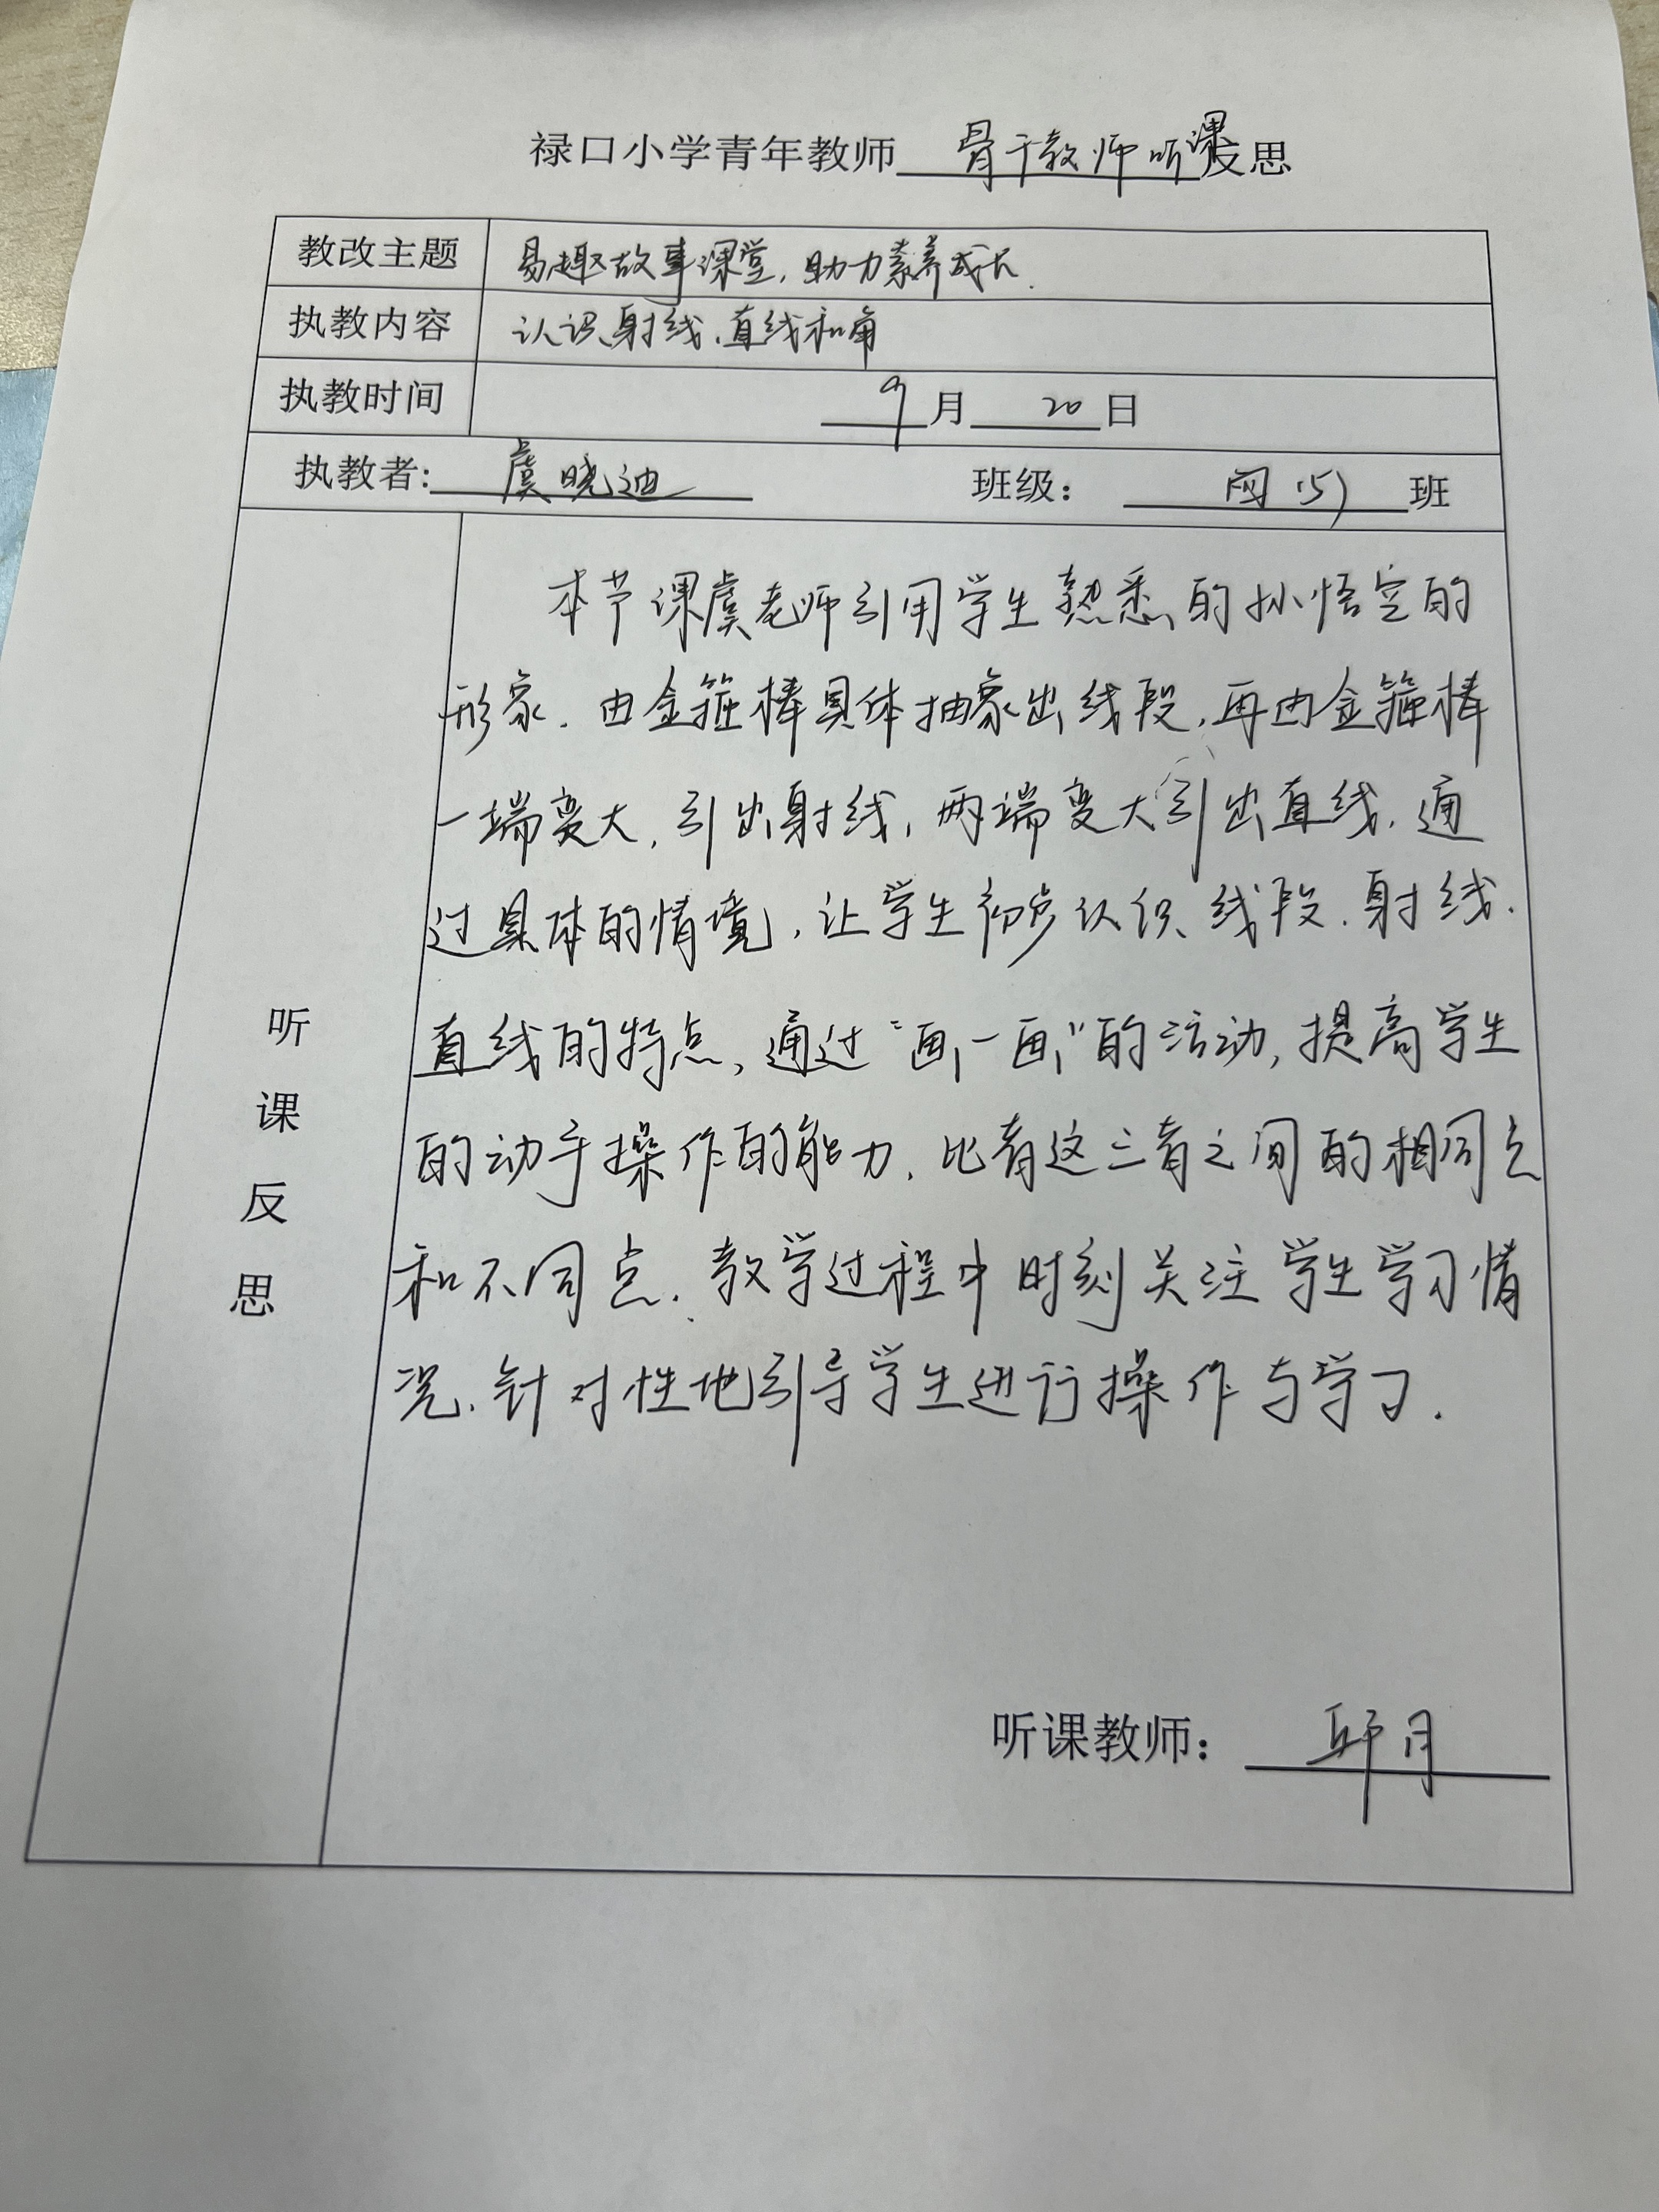 禄口小学青年教师 骨干教师听课反思
教改主题 易趣故事课堂，助力素养成长.
执教内容 认识射线、直线和角
执教时间 9月20日
执教者: 虞晓迪 班级： 四（5）班
听课反思
本节课虞老师引用学生熟悉的孙悟空的
形象. 由金箍棒具体抽象出线段，再由金箍棒
一端变大，引出射线，两端变大引出直线. 通
过具体的情境，让学生初步认识线段、射线、
直线的特点，通过“画一画”的活动，提高学生
的动手操作的能力. 比着这三者之间的相同点
和不同点. 教学过程中时刻关注学生学习情
况、针对性地引导学生进行操作与学习.
听课教师： 邱月